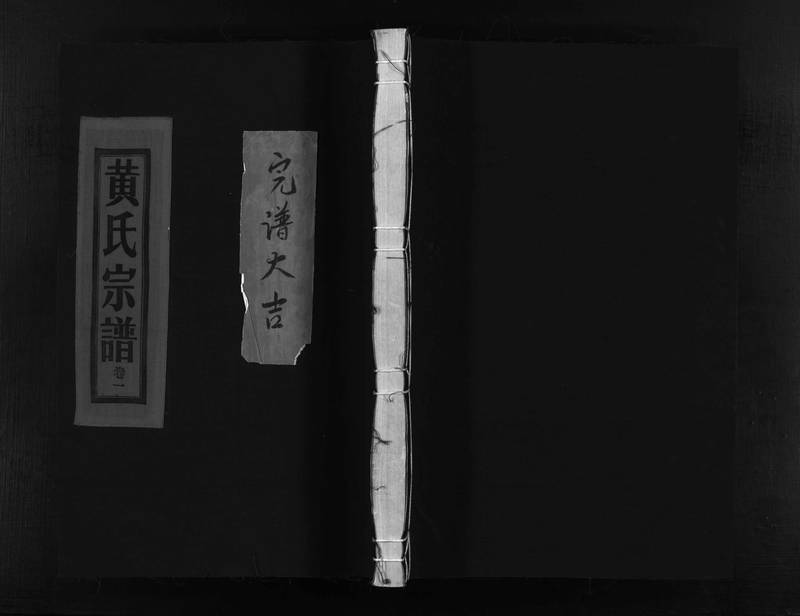 黄氏宗譜
卷一
完谱大吉